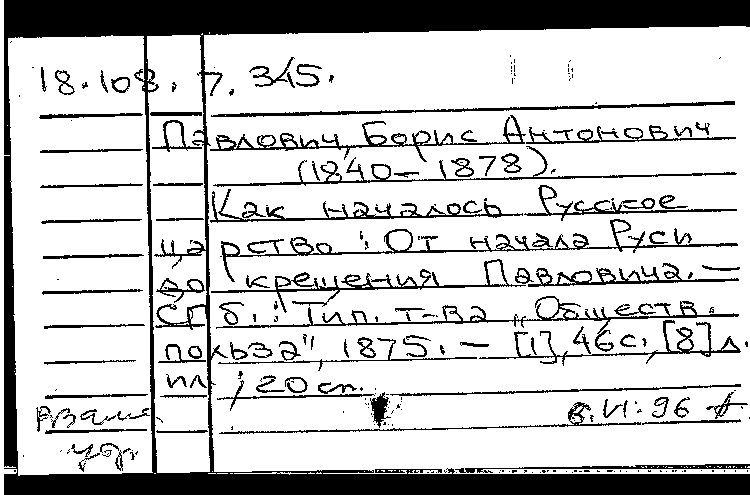 18.108.7.345.
Павлович, Борис Антонович
(1840-1878).
Как началось Русское
царство: От начала Руси
до крещения Павловича. —
СПб.: Тип. т-ва „Обществ.
польза", 1875. — [1], 46 с., [8] л.
ил.; 20 см.
6.VI.96